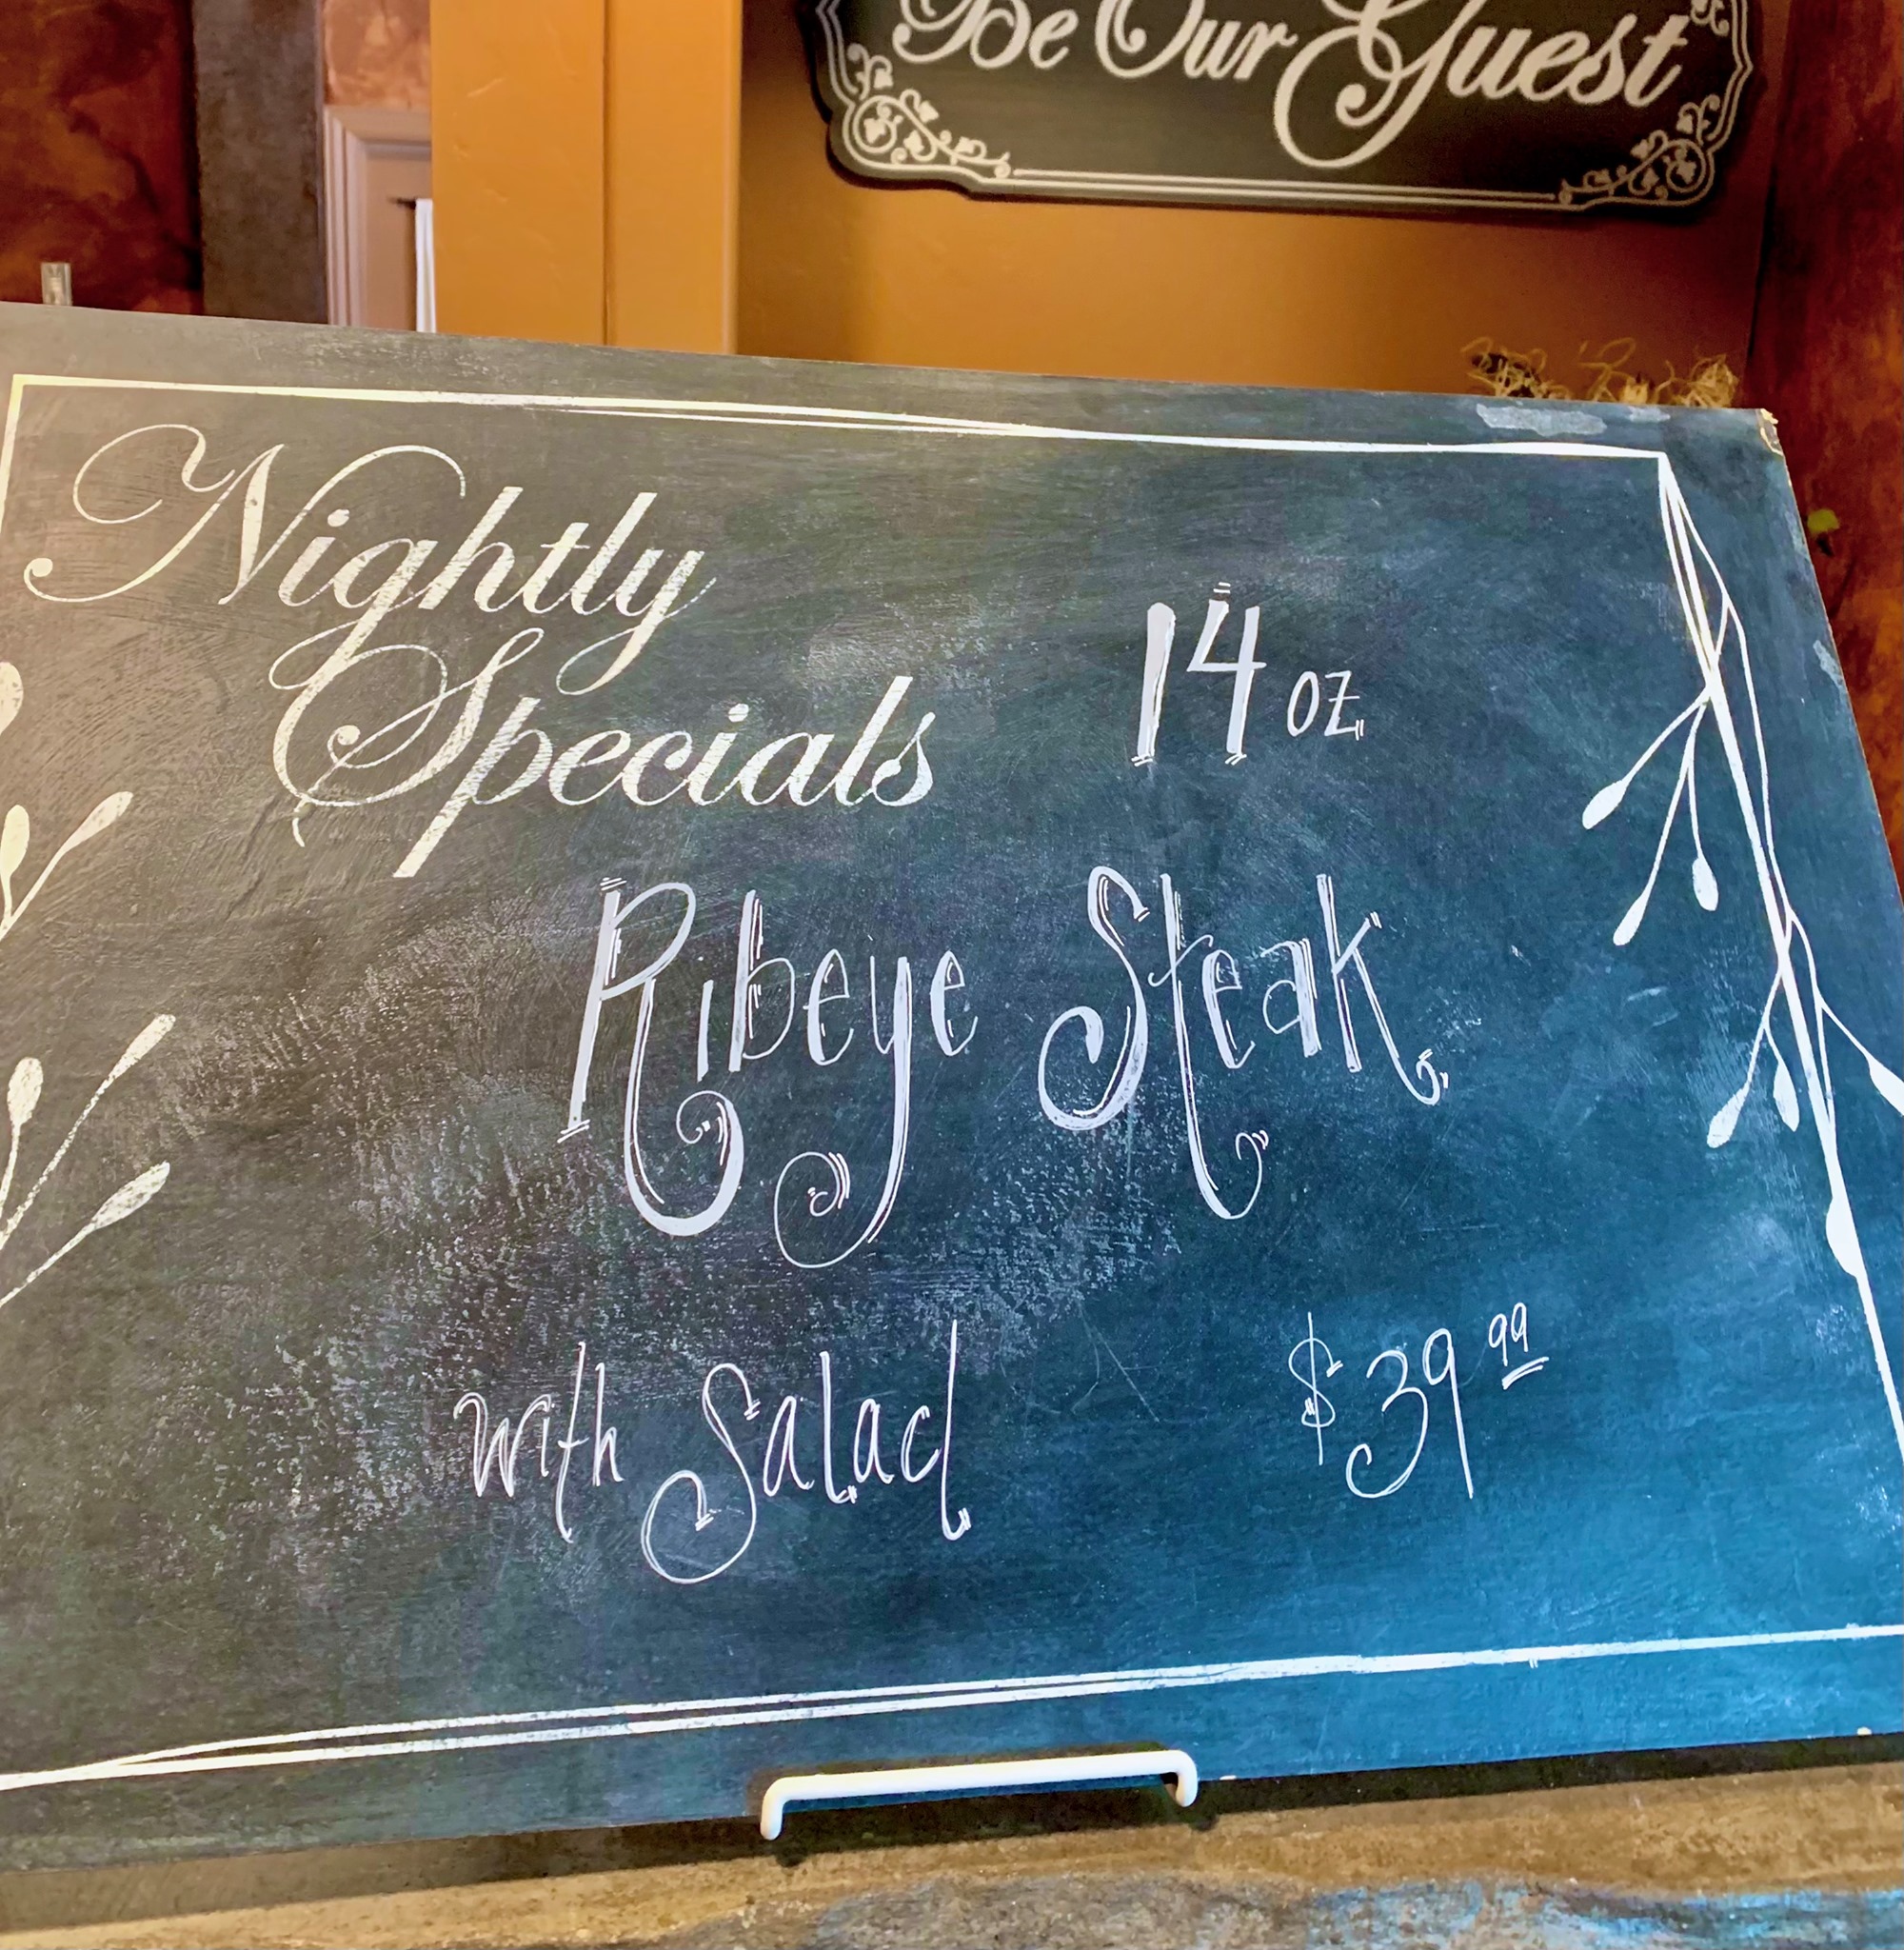 Be Our Guest
Nightly
Specials
14 oz
Ribeye Steak
with Salad $39 99